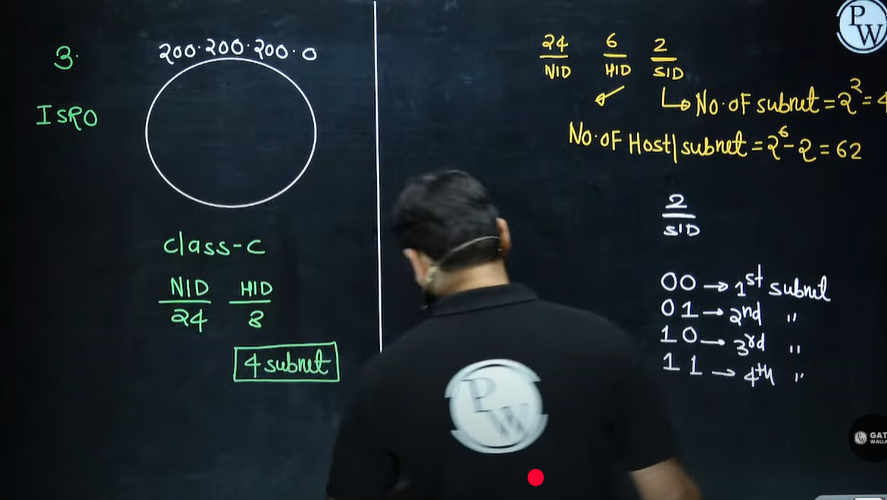 3.
ISRO
200.200.200.0
class-C
NID HID
24 8
4 subnet
24 6 2
NID HID SID
No.of subnet = 2² = 4
No.of Host/subnet = 2⁶-2 = 62
2
SID
00 → 1st subnet
01 → 2nd "
10 → 3rd "
11 → 4th "
PW
PW
GAT
WALLA